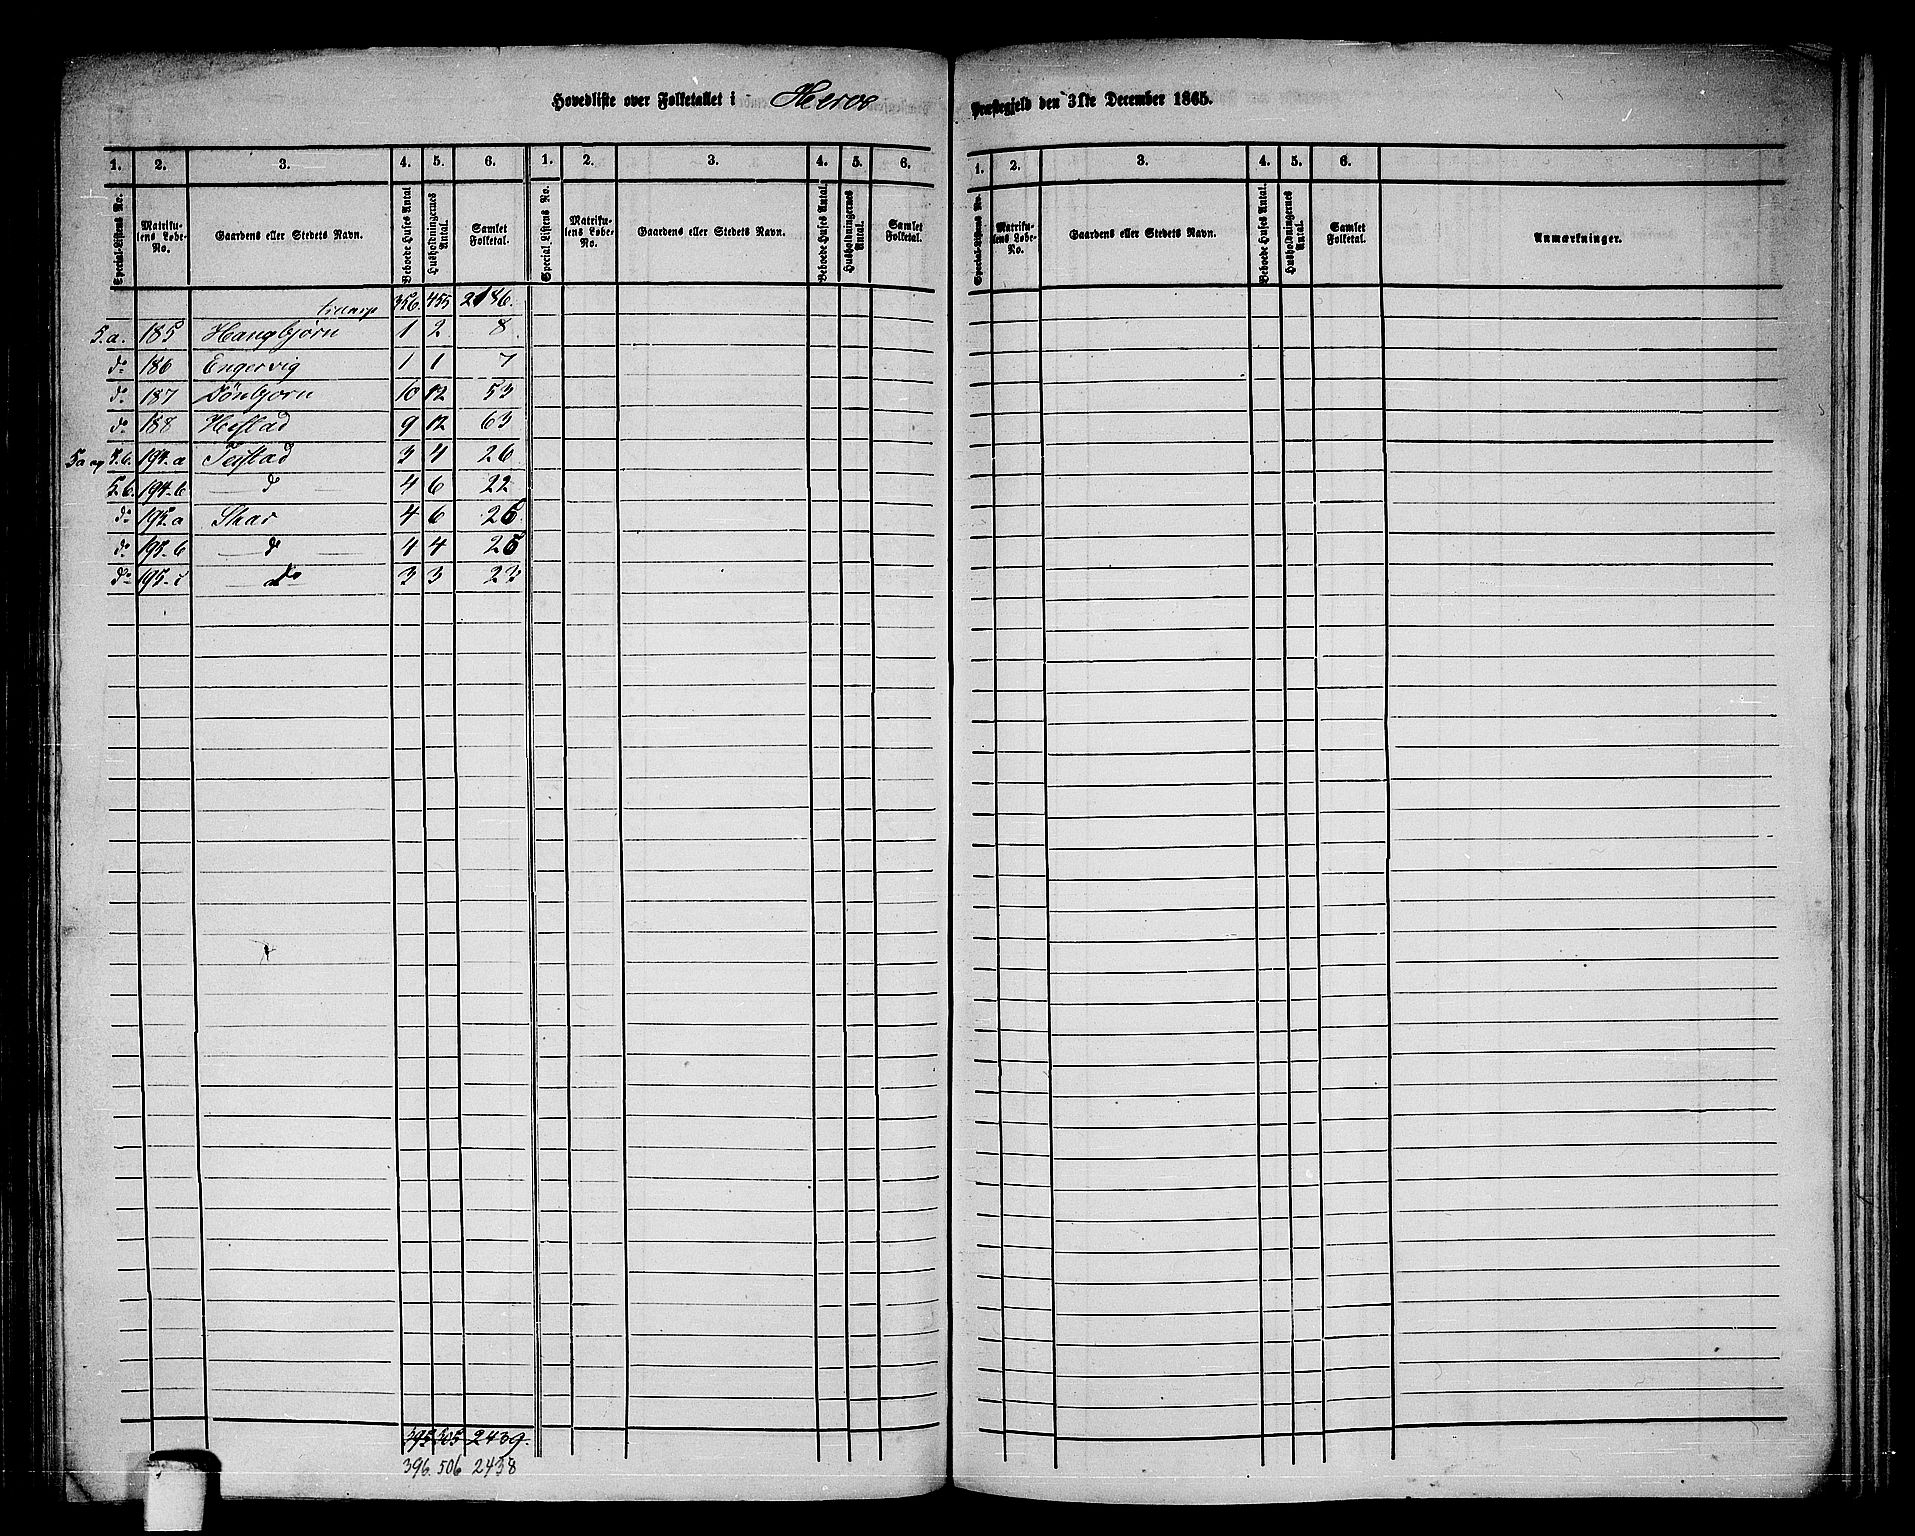 Hovedliste over Folketallet i Herøe Præstegjeld den 31te December 1865.
1. 2. 3. 4. 5. 6. 1. 2. 3. 4. 5. 6. 1. 2. 3. 4. 5. 6.
Special-Listens No. Matrikulens Løbe-No. Gaardens eller Stedets Navn. Beboede Huses Antal Husholdningernes Antal. Samlet Folketal. Special-Listens No. Matrikulens Løbe-No. Gaardens eller Stedets Navn. Beboede Huses Antal. Husholdningernes Antal. Samlet Folketal. Special-Listens No. Matrikulens Løbe-No. Gaardens eller Stedets Navn. Beboede Huses Antal. Husholdningernes Antal. Samlet Folketal. Anmærkninger.
356. 455 2146.
5.a. 185 Hangbjørn 1 2 8
do 186 Engervig 1 1 7
do 187 Sönbjørn 10 12 53
do 188 Hestad 9 12 63
5a og 5.b. 194.a Teistad 3 4 26
5.b. 194.b — do — 4 6 22
do 195.a Skar 4 6 26.
do 195.b — do — 4 4 26
do 195.c do 3 3 22
395 505 2439.
396. 506 2438